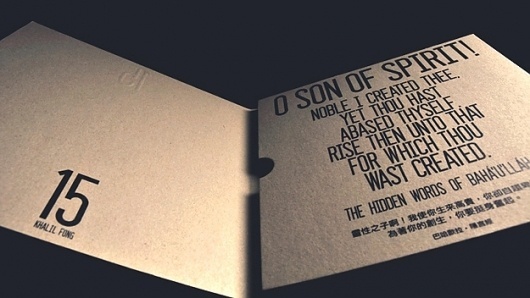 15
KHALIL FONG
O SON OF SPIRIT!
NOBLE I CREATED THEE,
YET THOU HAST
ABASED THYSELF.
RISE THEN UNTO THAT
FOR WHICH THOU
WAST CREATED.
THE HIDDEN WORDS OF BAHÁ'U'LLÁH
靈性之子啊！我使你生來高貴，
為着你的創生，你要挺身奮起。
巴哈歐拉・隱言經